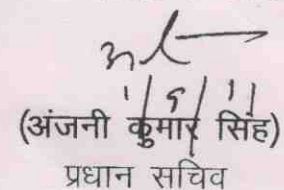 1/9/11
(अंजनी कुमार सिंह)
प्रधान सचिव